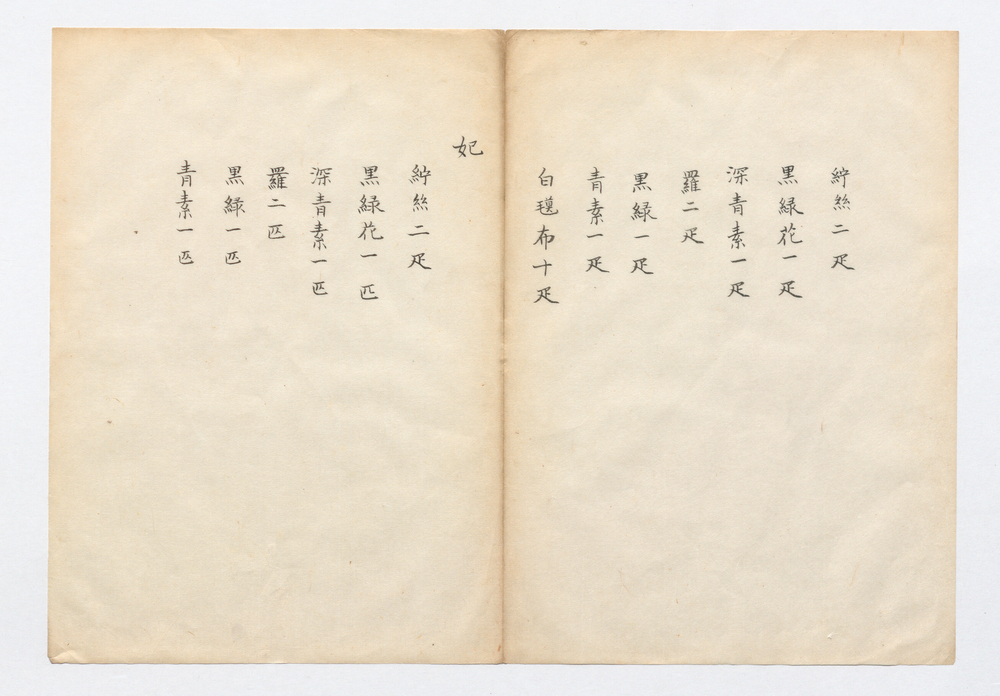 紵絲二疋
黒緑花一疋
深青素一疋
羅二疋
黒緑一疋
青素一疋
白氁布十疋
妃
紵絲二疋
黒緑花一匹
深青素一匹
羅二匹
黒緑一匹
青素一匹